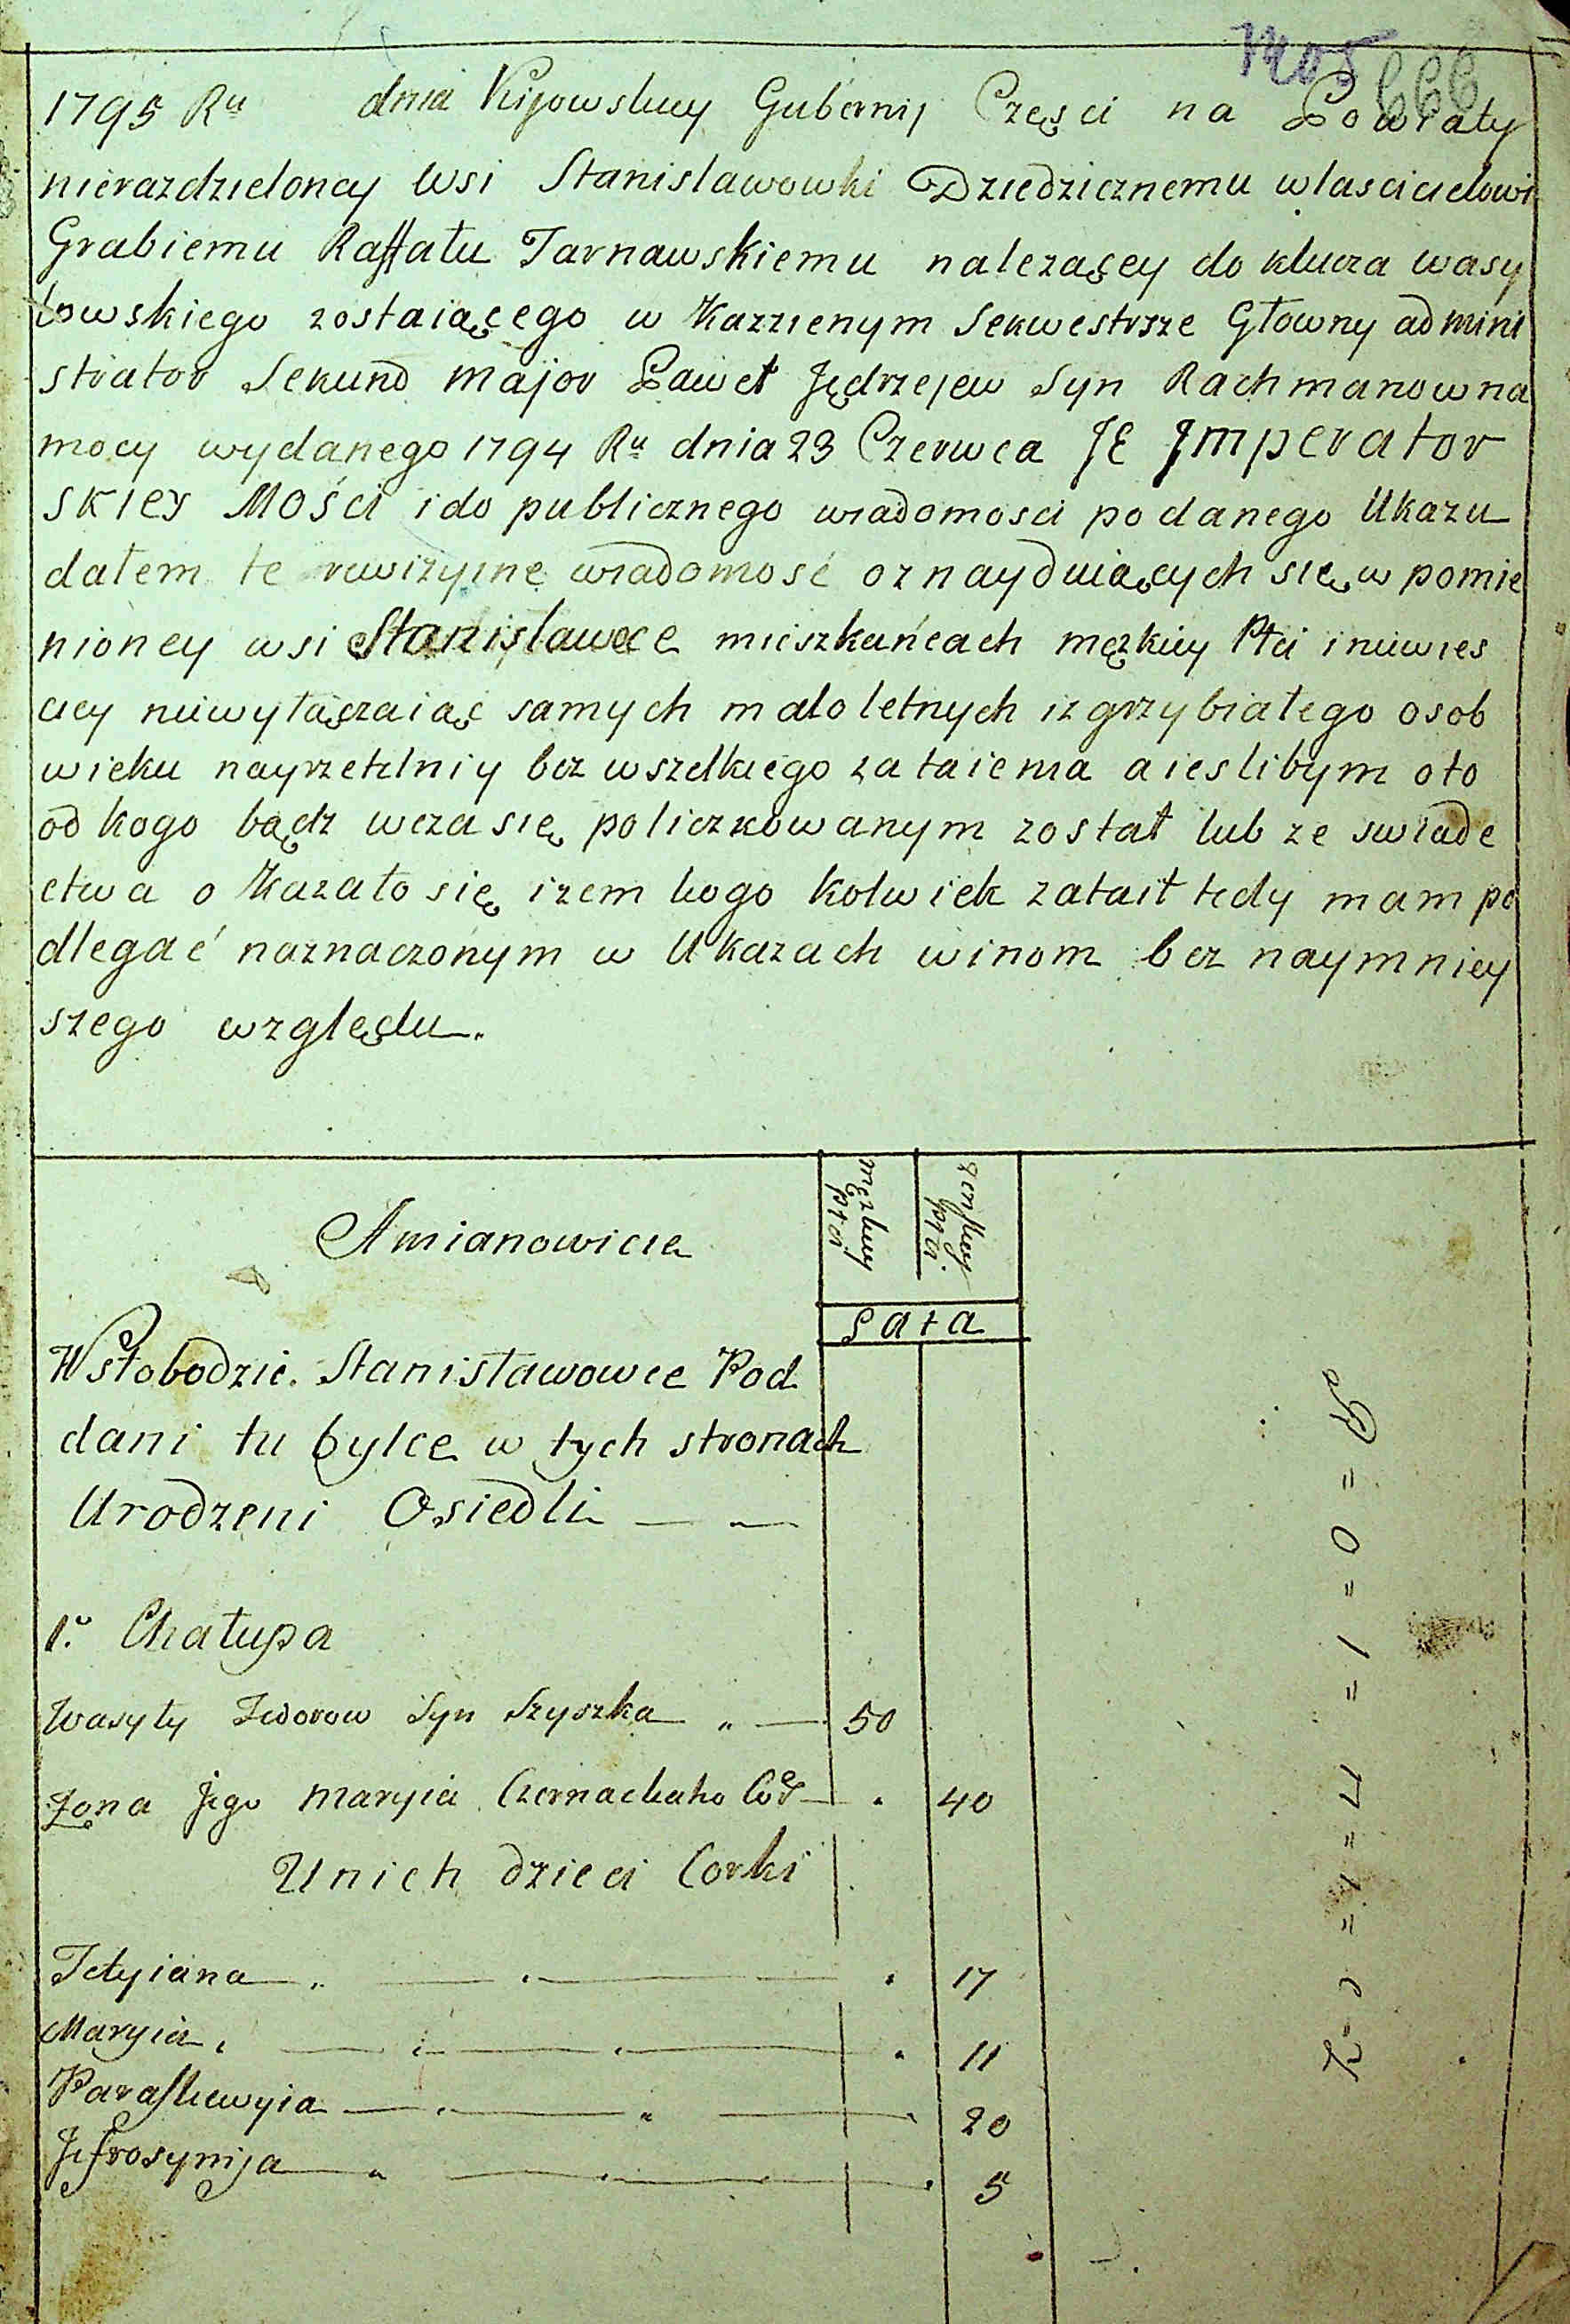 1795 Ru dnia Kijowskiey Gubernij Częsci na Powiaty
nierazdzieloney Wsi Stanislawowki Dziedzicznemu wlascicielowi
Grabiemu Raffału Tarnawskiemu nalezaącey do klucza wasy
łowskiego zostaiaącego w Kazzienym Sekwestrsze Głowny admini
strator Sekund major Paweł Jędrzejew Syn Rachmanow na
mocy wydanego 1794 Ru dnia 23 Czerwca JE Jmperator
skiey Mości i do publicznego wiadomosci podanego Ukazu
dałem te rewizyine wiadomość oznayduiących się w pomie
nioney wsi Stanislawece mieszkańcach męzkiey Płci i niewies
ciey niewyłaączaiaąc samych maloletnych i zgrzybiałego osob
wieku nayrzetelniy bez wszelkiego zataienia a ieslibym oto
od kogo bądz wczasię policzkowanym został lub ze swiade
ctwa o Kazało się izem kogo kolwiek zataił tedy mam po
dlegać naznaczonym w Ukazach winom bez naymniey
szego względu.
męzkiey płci
zenskiey płci
Amianowicie
Lata
W Słobodzie Stanisławowce Pod
dani tu bylce w tych stronach
Urodzeni Osiedli
1o Chałupa
Wasyły Fedorow Syn Szyszka 50
Zona Jego Maryia Czernachaho Cor 40
U nich dzieci Corki
Tetyiana 17
Maryia 11
Paraskewyia 20
Jefrosynija 5